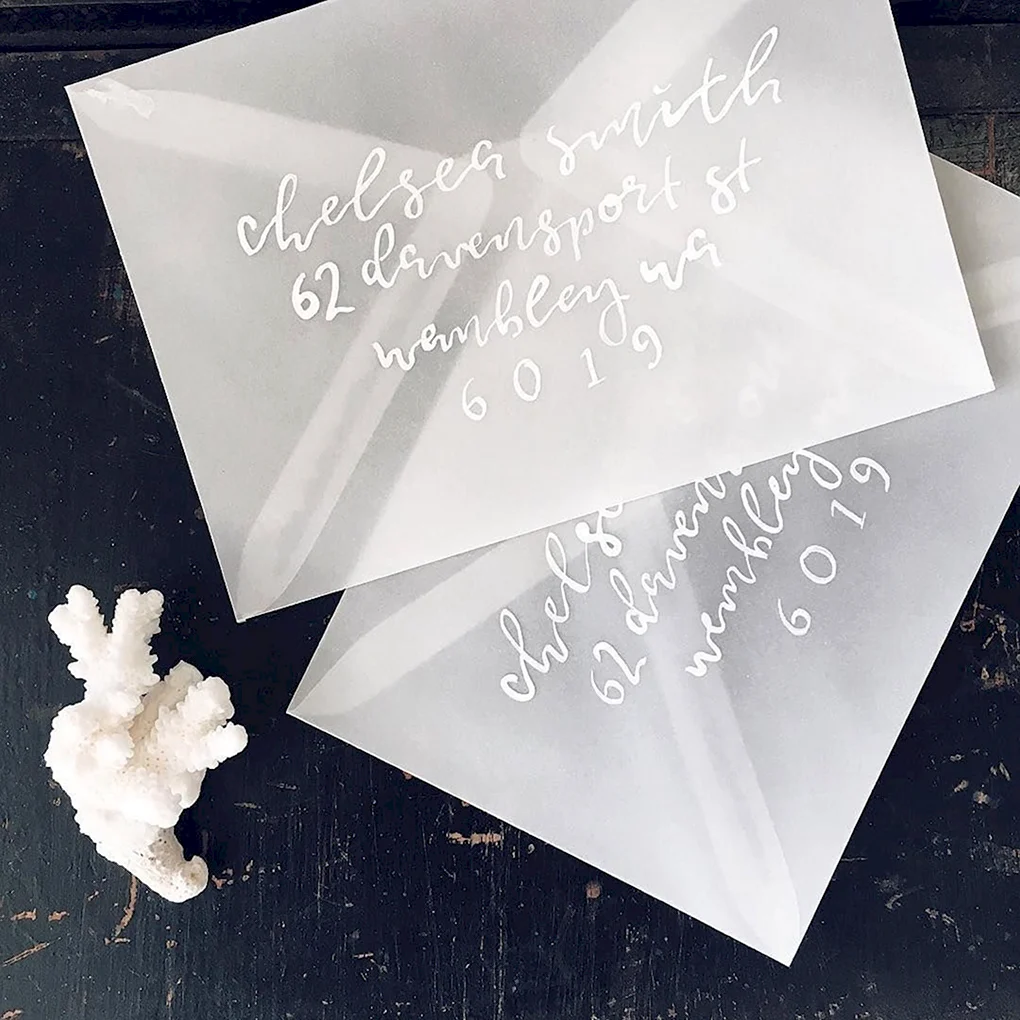 chelsea smith
62 davensport st
wembley wa
6019
chelse
62 daven
wembley
6019